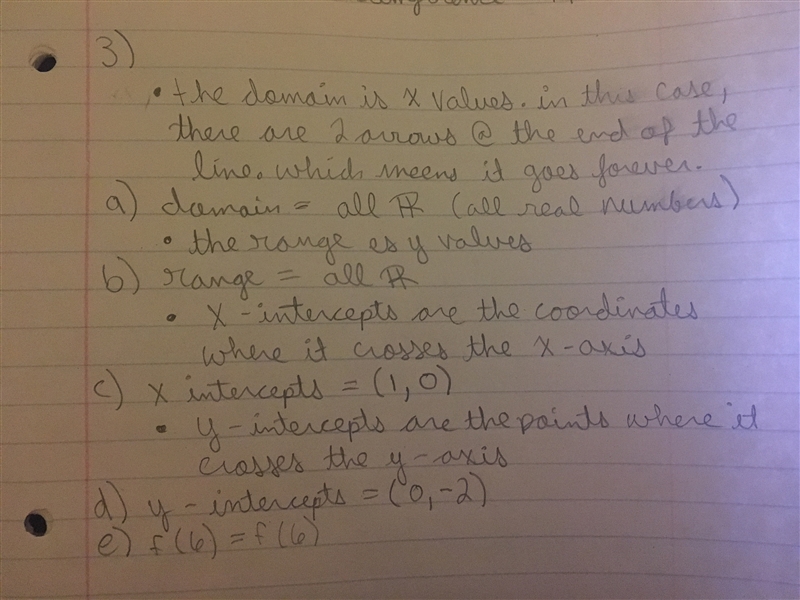 3)
• the domain is x values. in this case,
there are 2 arrows @ the end of the
line. which means it goes forever.
a) domain = all ℝ (all real numbers)
• the range es y values
b) range = all ℝ
• X-intercepts are the coordinates
where it crosses the x-axis
c) x intercepts = (1,0)
• y-intercepts are the points where it
crosses the y-axis
d) y-intercepts = (0,-2)
e) f(6) = f(6)